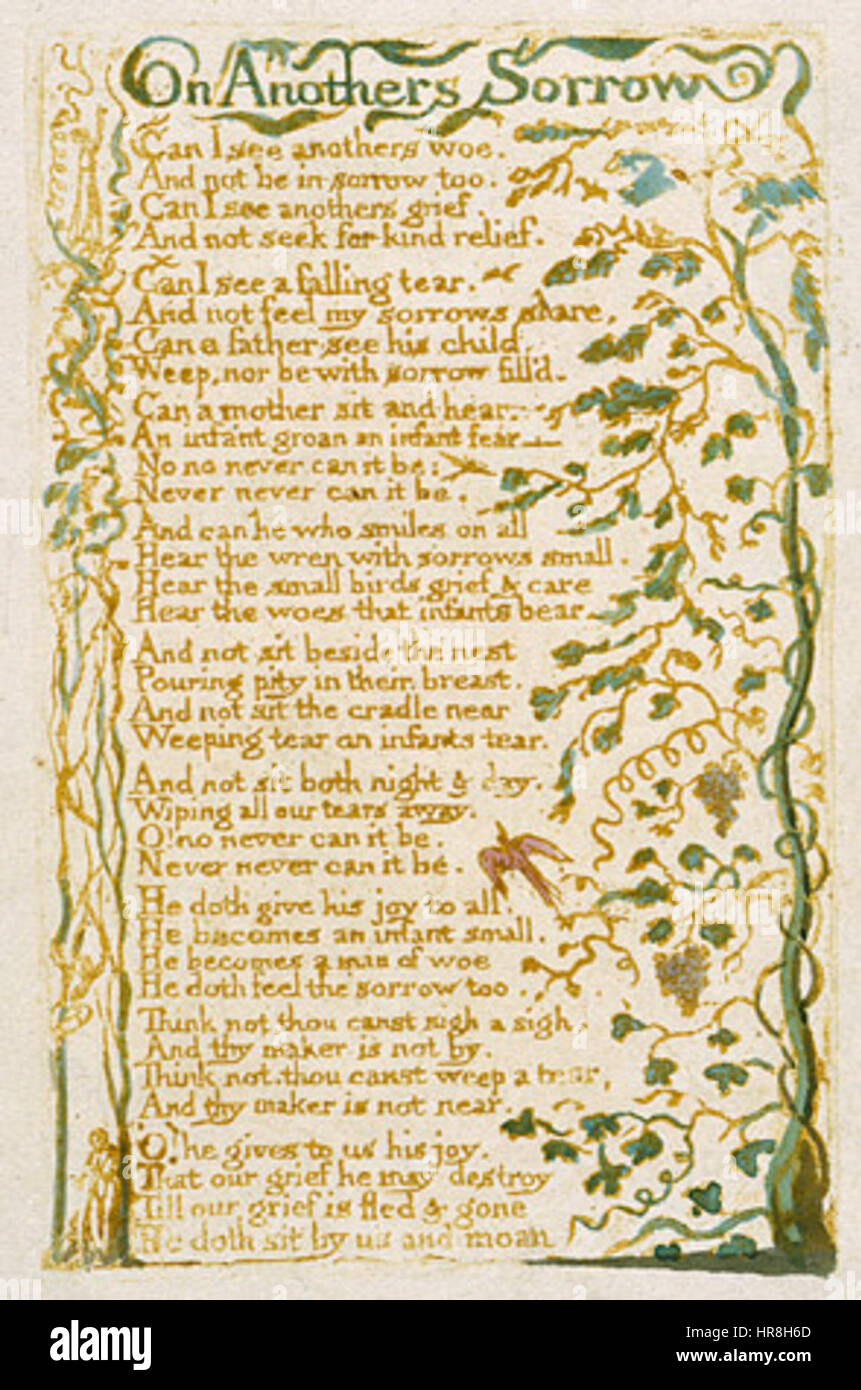 On Anothers Sorrow
Can I see anothers woe.
And not be in sorrow too.
Can I see anothers grief.
And not seek for kind relief.
Can I see a falling tear.
And not feel my sorrows share,
Can a father see his child,
Weep, nor be with sorrow fill'd.
Can a mother sit and hear.
An infant groan an infant fear
No no never can it be;
Never never can it be.
And can he who smiles on all
Hear the wren with sorrows small.
Hear the small birds grief & care
Hear the woes that infants bear
And not sit beside the nest
Pouring pity in their breast.
And not sit the cradle near
Weeping tear on infants tear.
And not sit both night & day.
Wiping all our tears away.
O! no never can it be.
Never never can it be.
He doth give his joy to all.
He becomes an infant small.
He becomes a man of woe
He doth feel the sorrow too.
Think not thou canst sigh a sigh,
And thy maker is not by.
Think not thou canst weep a tear,
And thy maker is not near.
O! he gives to us his joy.
That our grief he may destroy
Till our grief is fled & gone
He doth sit by us and moan
alamy stock photo
HR8H6D
www.alamy.com